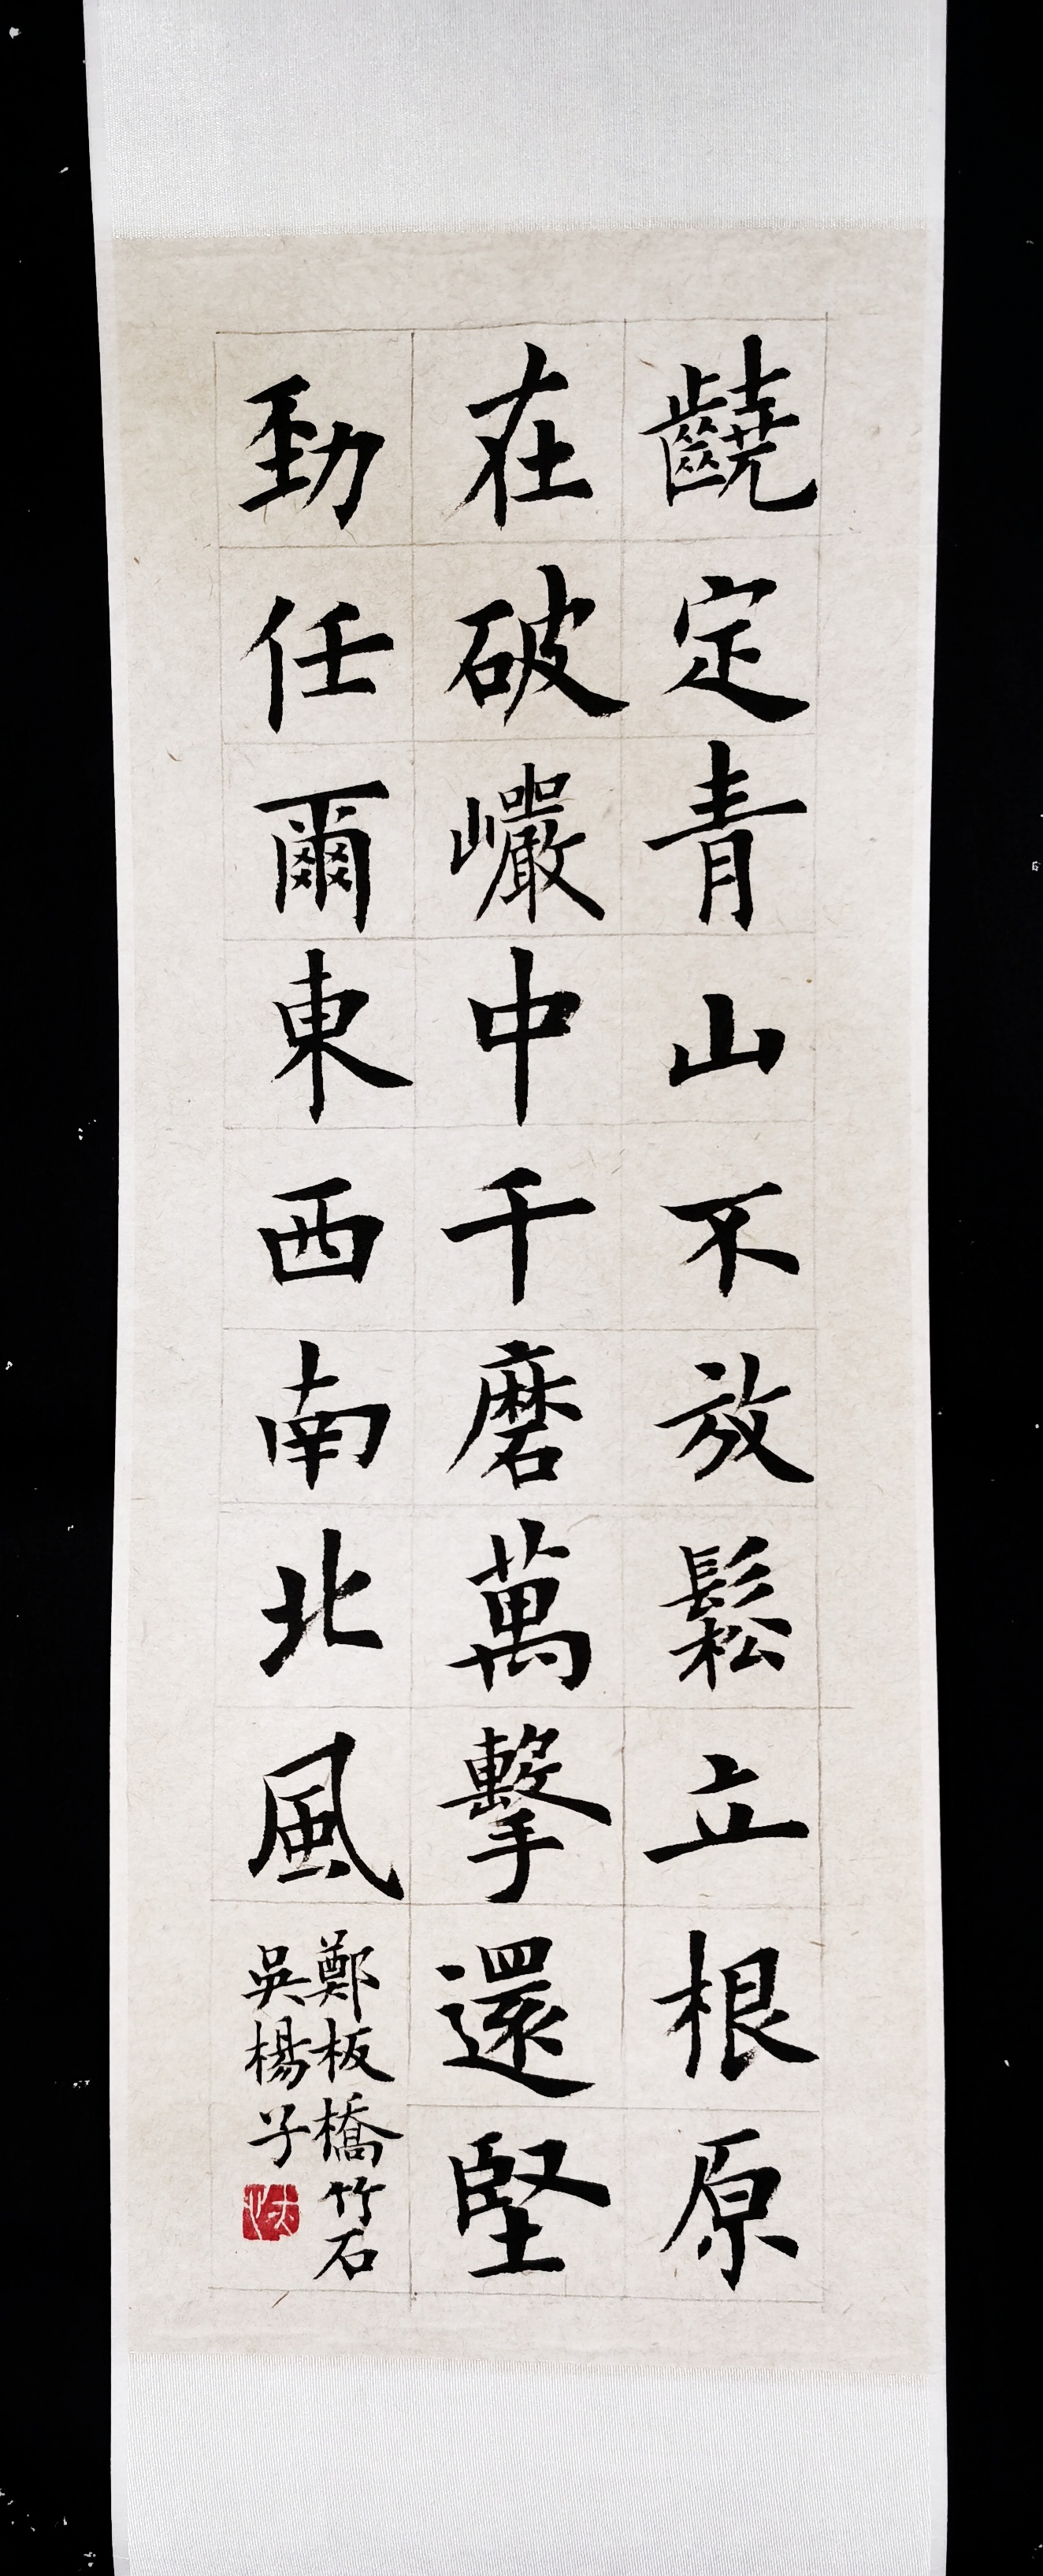 齩定青山不放鬆立根原
在破巖中千磨萬擊還堅
勁任爾東西南北風
鄭板橋竹石
吳楊子